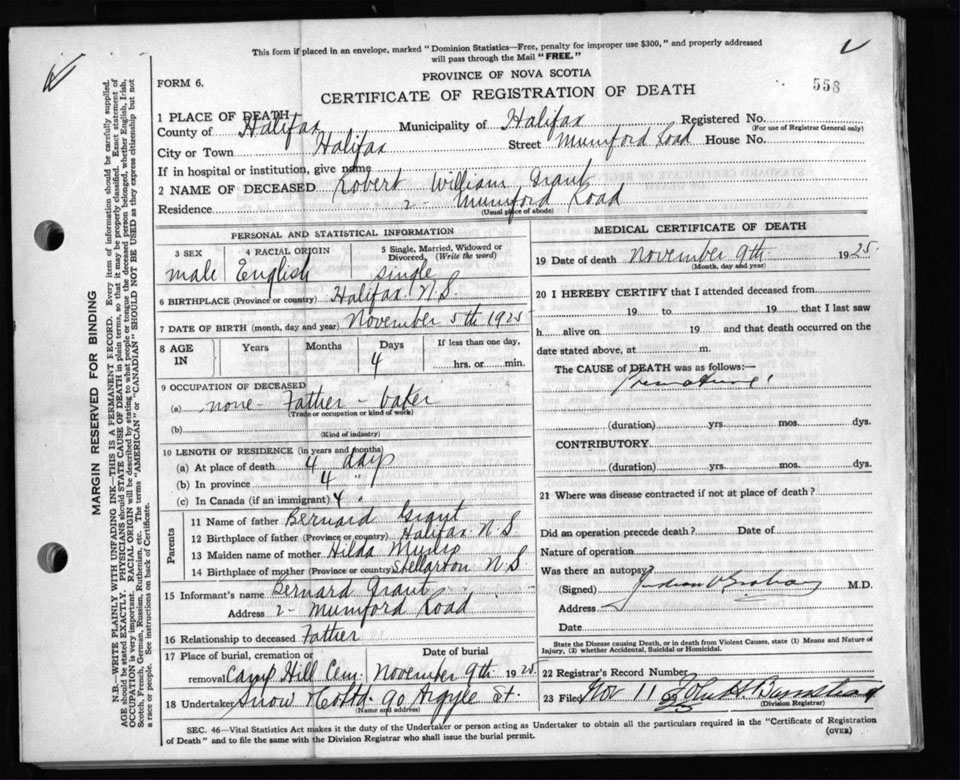 This form if placed in an envelope, marked "Dominion Statistics—Free, penalty for improper use $300," and properly addressed
will pass through the Mail "FREE."
PROVINCE OF NOVA SCOTIA
FORM 6.
558
CERTIFICATE OF REGISTRATION OF DEATH
1 PLACE OF DEATH
County of Halifax Municipality of Halifax Registered No.
(For use of Registrar General only)
City or Town Halifax Street Mumford Road House No.
If in hospital or institution, give name
2 NAME OF DECEASED Robert William Grant
Residence 2- Mumford Road
(Usual place of abode)
PERSONAL AND STATISTICAL INFORMATION
3 SEX 4 RACIAL ORIGIN 5 Single, Married, Widowed or
Divorced, (Write the word)
male English single
6 BIRTHPLACE (Province or country) Halifax N.S.
7 DATE OF BIRTH (month, day and year) November 5th 1925
8 AGE IN Years Months Days If less than one day,
4 hrs. or min.
9 OCCUPATION OF DECEASED
(a) none - Father - baker
(Trade or occupation or kind of work)
(b)
(Kind of industry)
10 LENGTH OF RESIDENCE (in years and months)
(a) At place of death 4 days
(b) In province 4 "
(c) In Canada (if an immigrant) 4 "
Parents
11 Name of father Bernard Grant
12 Birthplace of father (Province or country) Halifax N S
13 Maiden name of mother Hilda Munro
14 Birthplace of mother (Province or country) Stellarton N S.
15 Informant's name Bernard Grant
Address 2- Mumford Road
16 Relationship to deceased Father
17 Place of burial, cremation or Date of burial
removal Camp Hill Cem. November 9th 1925
18 Undertaker Snow & Co Ltd. 90 Argyle St.
(Name and address)
MEDICAL CERTIFICATE OF DEATH
19 Date of death November 9th 1925
(Month, day and year)
20 I HEREBY CERTIFY that I attended deceased from
19 to 19 that I last saw
h alive on 19 and that death occurred on the
date stated above, at m.
The CAUSE of DEATH was as follows:—
Premature
(duration) yrs. mos. dys.
CONTRIBUTORY
(duration) yrs. mos. dys.
21 Where was disease contracted if not at place of death?
Did an operation precede death? Date of
Nature of operation
Was there an autopsy?
(Signed) M.D.
Address
Date
State the Disease causing Death, or in death from Violent Causes, state (1) Means and Nature of
Injury, (2) whether Accidental, Suicidal or Homicidal.
22 Registrar's Record Number
23 Filed Nov 11 25
(Division Registrar)
SEC. 46—Vital Statistics Act makes it the duty of the Undertaker or person acting as Undertaker to obtain all the particulars required in the "Certificate of Registration
of Death" and to file the same with the Division Registrar who shall issue the burial permit.
(OVER)
MARGIN RESERVED FOR BINDING
N.B.—WRITE PLAINLY WITH UNFADING INK—THIS IS A PERMANENT RECORD. Every item of information should be carefully supplied.
AGE should be stated EXACTLY. PHYSICIANS should STATE CAUSE OF DEATH in plain terms, so that it may be properly classified. Exact statement of
OCCUPATION is very important. RACIAL ORIGIN will be described by stating to what people or tongue the deceased person belonged, whether English, Irish,
Scotch, French, German, Russian, Ruthenian, etc. The terms "AMERICAN" or "CANADIAN" SHOULD NOT BE USED as they express citizenship but not
a race or people. See instructions on back of Certificate.